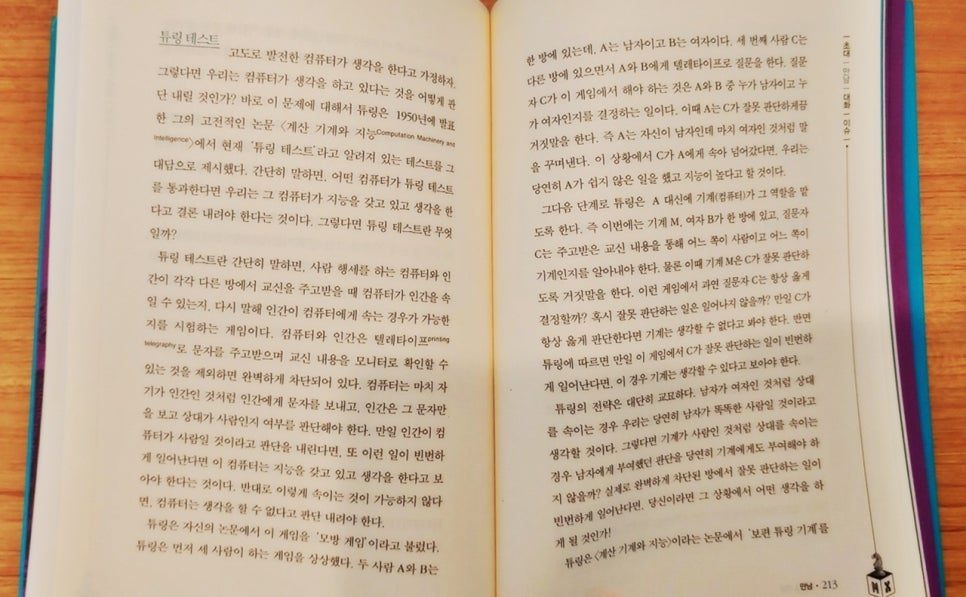 튜링 테스트
고도로 발전한 컴퓨터가 생각을 한다고 가정하자.
그렇다면 우리는 컴퓨터가 생각을 하고 있다는 것을 어떻게 판
단 내릴 것인가? 바로 이 문제에 대해서 튜링은 1950년에 발표
한 그의 고전적인 논문 〈계산 기계와 지능Computation Machinery and
Intelligence〉에서 현재 '튜링 테스트'라고 알려져 있는 테스트를 그
대답으로 제시했다. 간단히 말하면, 어떤 컴퓨터가 튜링 테스트
를 통과한다면 우리는 그 컴퓨터가 지능을 갖고 있고 생각을 한
다고 결론 내려야 한다는 것이다. 그렇다면 튜링 테스트란 무엇
일까?
튜링 테스트란 간단히 말하면, 사람 행세를 하는 컴퓨터와 인
간이 각각 다른 방에서 교신을 주고받을 때 컴퓨터가 인간을 속
일 수 있는지, 다시 말해 인간이 컴퓨터에게 속는 경우가 가능한
지를 시험하는 게임이다. 컴퓨터와 인간은 텔레타이프printing
telegraphy로 문자를 주고받으며 교신 내용을 모니터로 확인할 수
있는 것을 제외하면 완벽하게 차단되어 있다. 컴퓨터는 마치 자
기가 인간인 것처럼 인간에게 문자를 보내고, 인간은 그 문자만
을 보고 상대가 사람인지 여부를 판단해야 한다. 만일 인간이 컴
퓨터가 사람일 것이라고 판단을 내린다면, 또 이런 일이 빈번하
게 일어난다면 이 컴퓨터는 지능을 갖고 있고 생각을 한다고 보
아야 한다는 것이다. 반대로 이렇게 속이는 것이 가능하지 않다
면, 컴퓨터는 생각을 할 수 없다고 판단 내려야 한다.
튜링은 자신의 논문에서 이 게임을 '모방 게임'이라고 불렀다.
튜링은 먼저 세 사람이 하는 게임을 상상했다. 두 사람 A와 B는
한 방에 있는데, A는 남자이고 B는 여자이다. 세 번째 사람 C는
다른 방에 있으면서 A와 B에게 텔레타이프로 질문을 한다. 질문
자 C가 이 게임에서 해야 하는 것은 A와 B 중 누가 남자이고 누
가 여자인지를 결정하는 일이다. 이때 A는 C가 잘못 판단하게끔
거짓말을 한다. 즉 A는 자신이 남자인데 마치 여자인 것처럼 말
을 꾸며낸다. 이 상황에서 C가 A에게 속아 넘어갔다면, 우리는
당연히 A가 쉽지 않은 일을 했고 지능이 높다고 할 것이다.
그다음 단계로 튜링은 A 대신에 기계(컴퓨터)가 그 역할을 맡
도록 한다. 즉 이번에는 기계 M, 여자 B가 한 방에 있고, 질문자
C는 주고받은 교신 내용을 통해 어느 쪽이 사람이고 어느 쪽이
기계인지를 알아내야 한다. 물론 이때 기계 M은 C가 잘못 판단하
도록 거짓말을 한다. 이런 게임에서 과연 질문자 C는 항상 옳게
결정할까? 혹시 잘못 판단하는 일은 일어나지 않을까? 만일 C가
항상 옳게 판단한다면 기계는 생각할 수 없다고 봐야 한다. 반면
튜링에 따르면 만일 이 게임에서 C가 잘못 판단하는 일이 빈번하
게 일어난다면, 이 경우 기계는 생각할 수 있다고 보아야 한다.
튜링의 전략은 대단히 교묘하다. 남자가 여자인 것처럼 상대
를 속이는 경우 우리는 당연히 남자가 똑똑한 사람일 것이라고
생각할 것이다. 그렇다면 기계가 사람인 것처럼 상대를 속이는
경우 남자에게 부여했던 판단을 당연히 기계에게도 부여해야 하
지 않을까? 실제로 완벽하게 차단된 방에서 잘못 판단하는 일이
빈번하게 일어난다면, 당신이라면 그 상황에서 어떤 생각을 하
게 될 것인가!
튜링은 〈계산 기계와 지능〉이라는 논문에서 '보편 튜링 기계'를
초대
만남
대화
이슈
만남 · 213